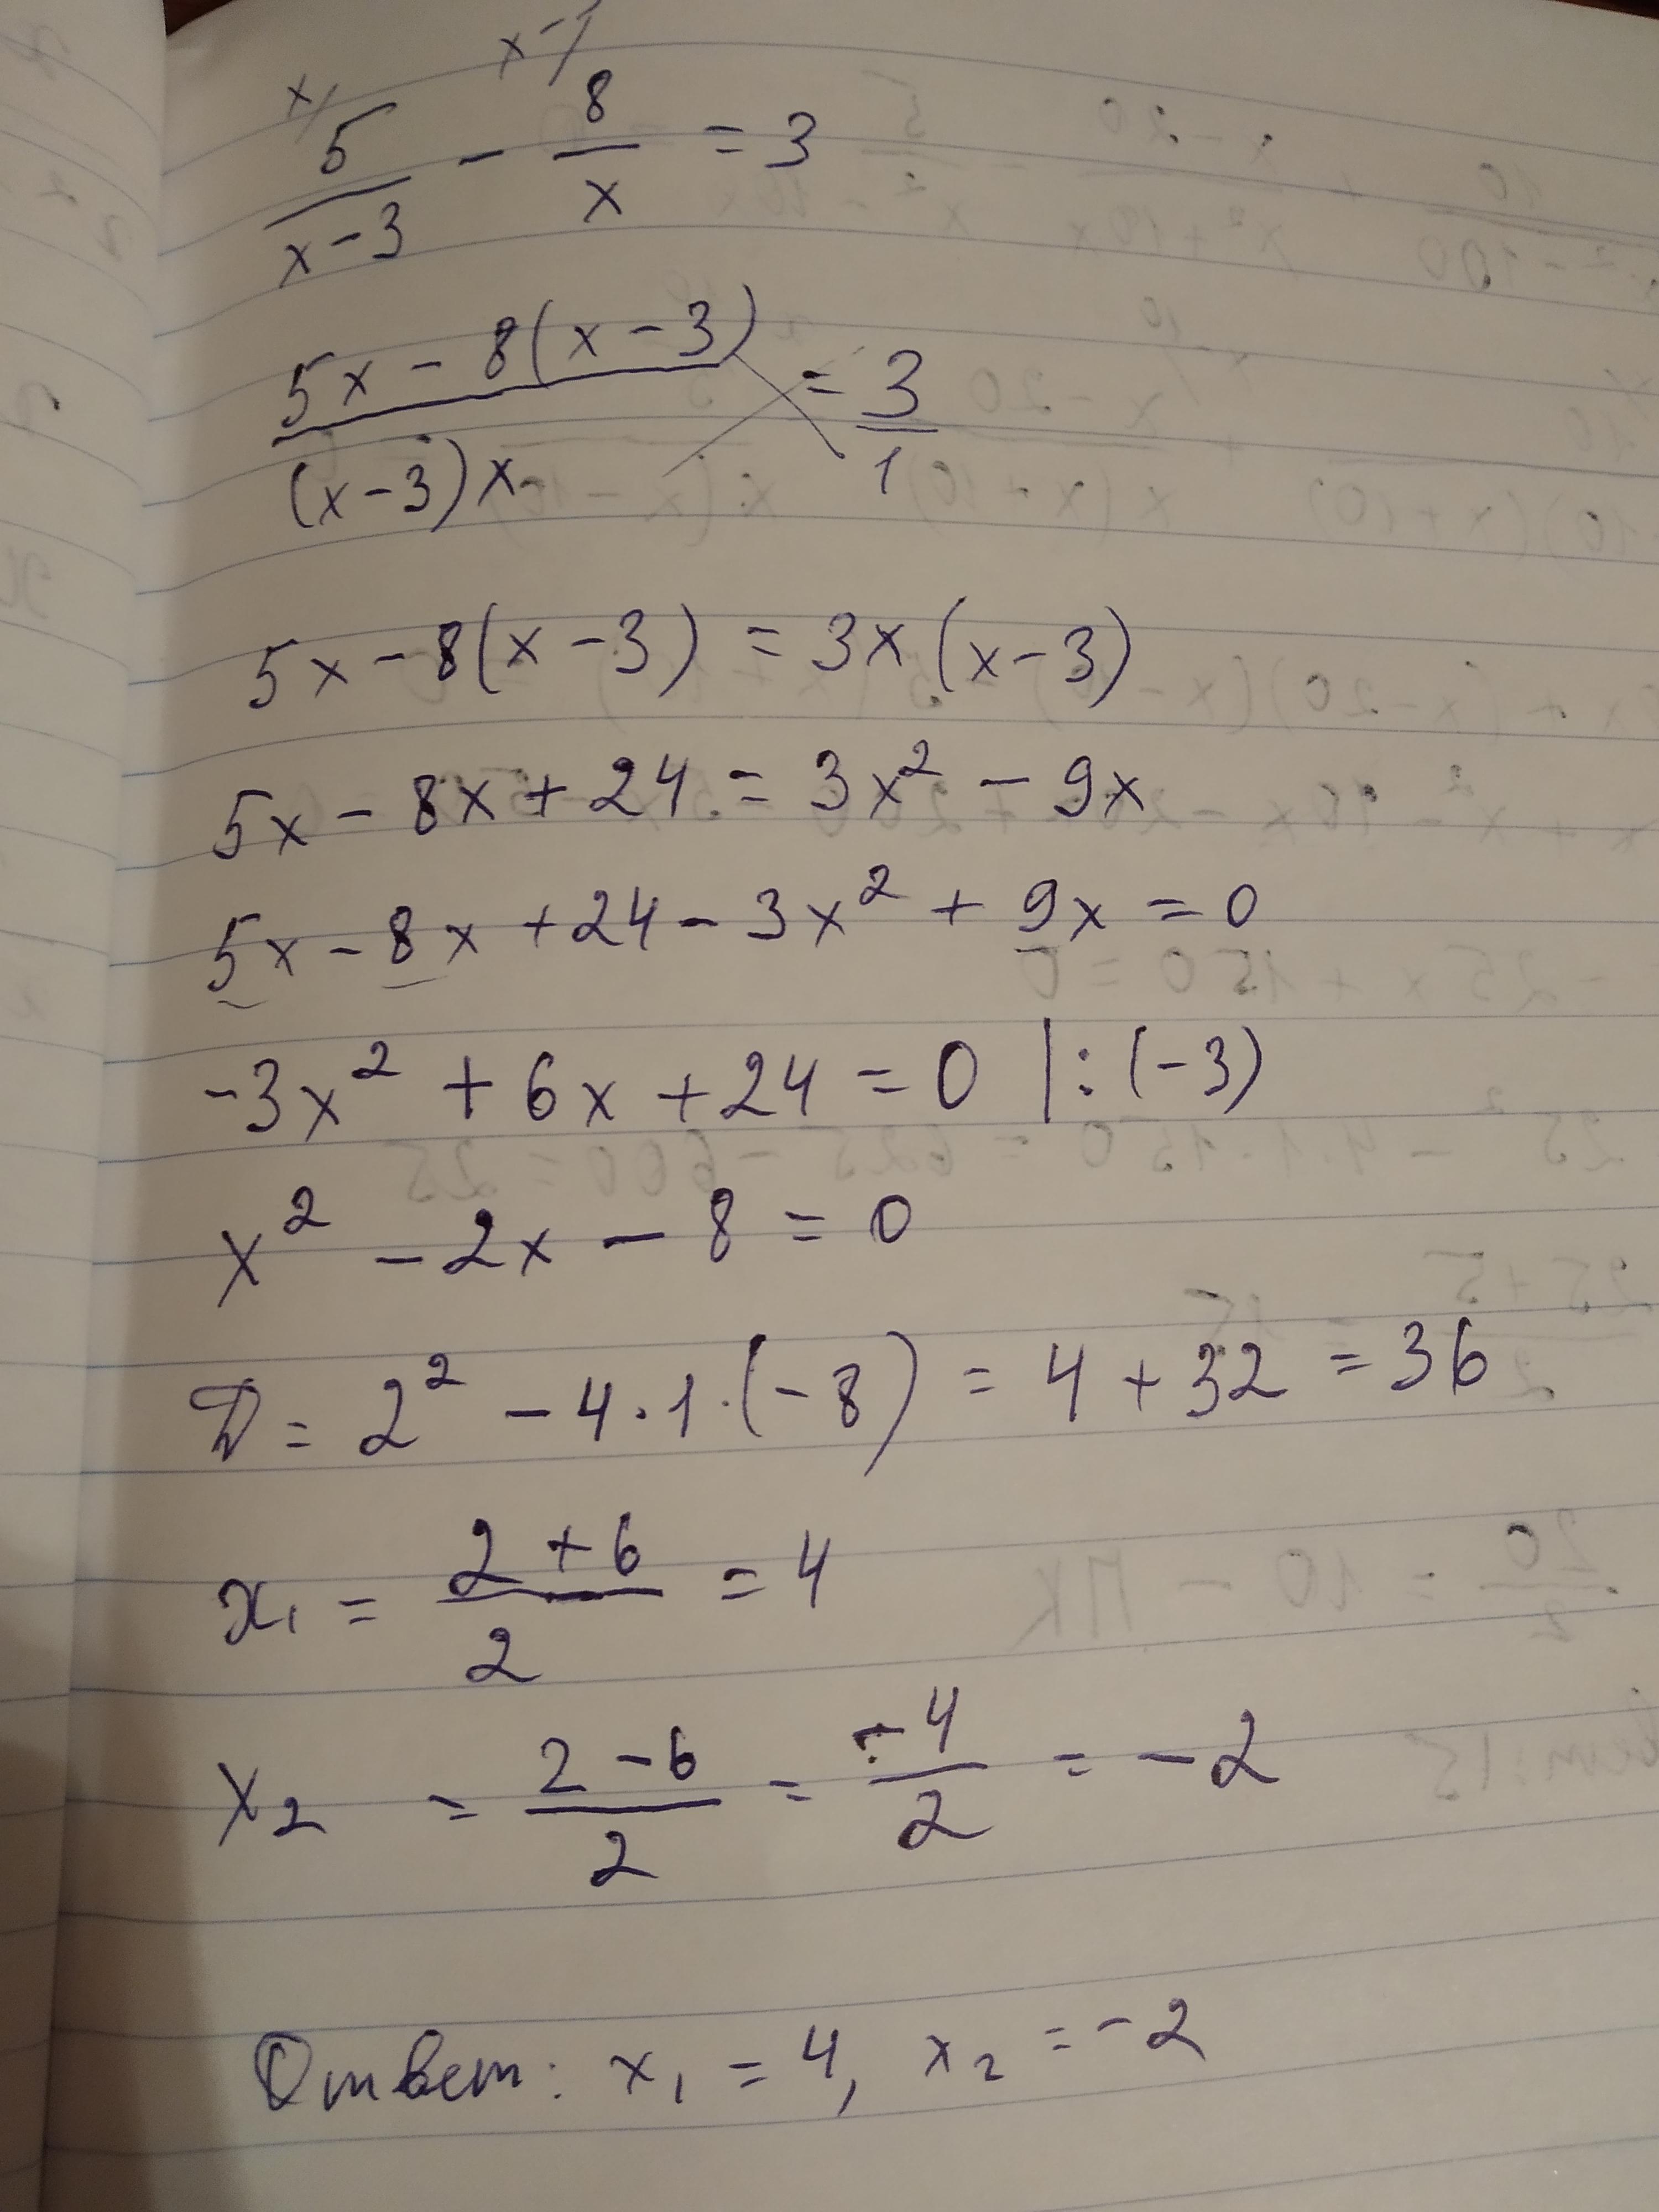 x/ x-/
5/(x-3) - 8/x = 3
(5x - 8(x-3))/((x-3)x) = 3/1
5x - 8(x-3) = 3x(x-3)
5x - 8x + 24 = 3x² - 9x
5x - 8x + 24 - 3x² + 9x = 0
-3x² + 6x + 24 = 0 |:(-3)
x² - 2x - 8 = 0
D = 2² - 4·1·(-8) = 4 + 32 = 36
x₁ = (2+6)/2 = 4
x₂ = (2-6)/2 = -4/2 = -2
Ответ: x₁ = 4, x₂ = -2